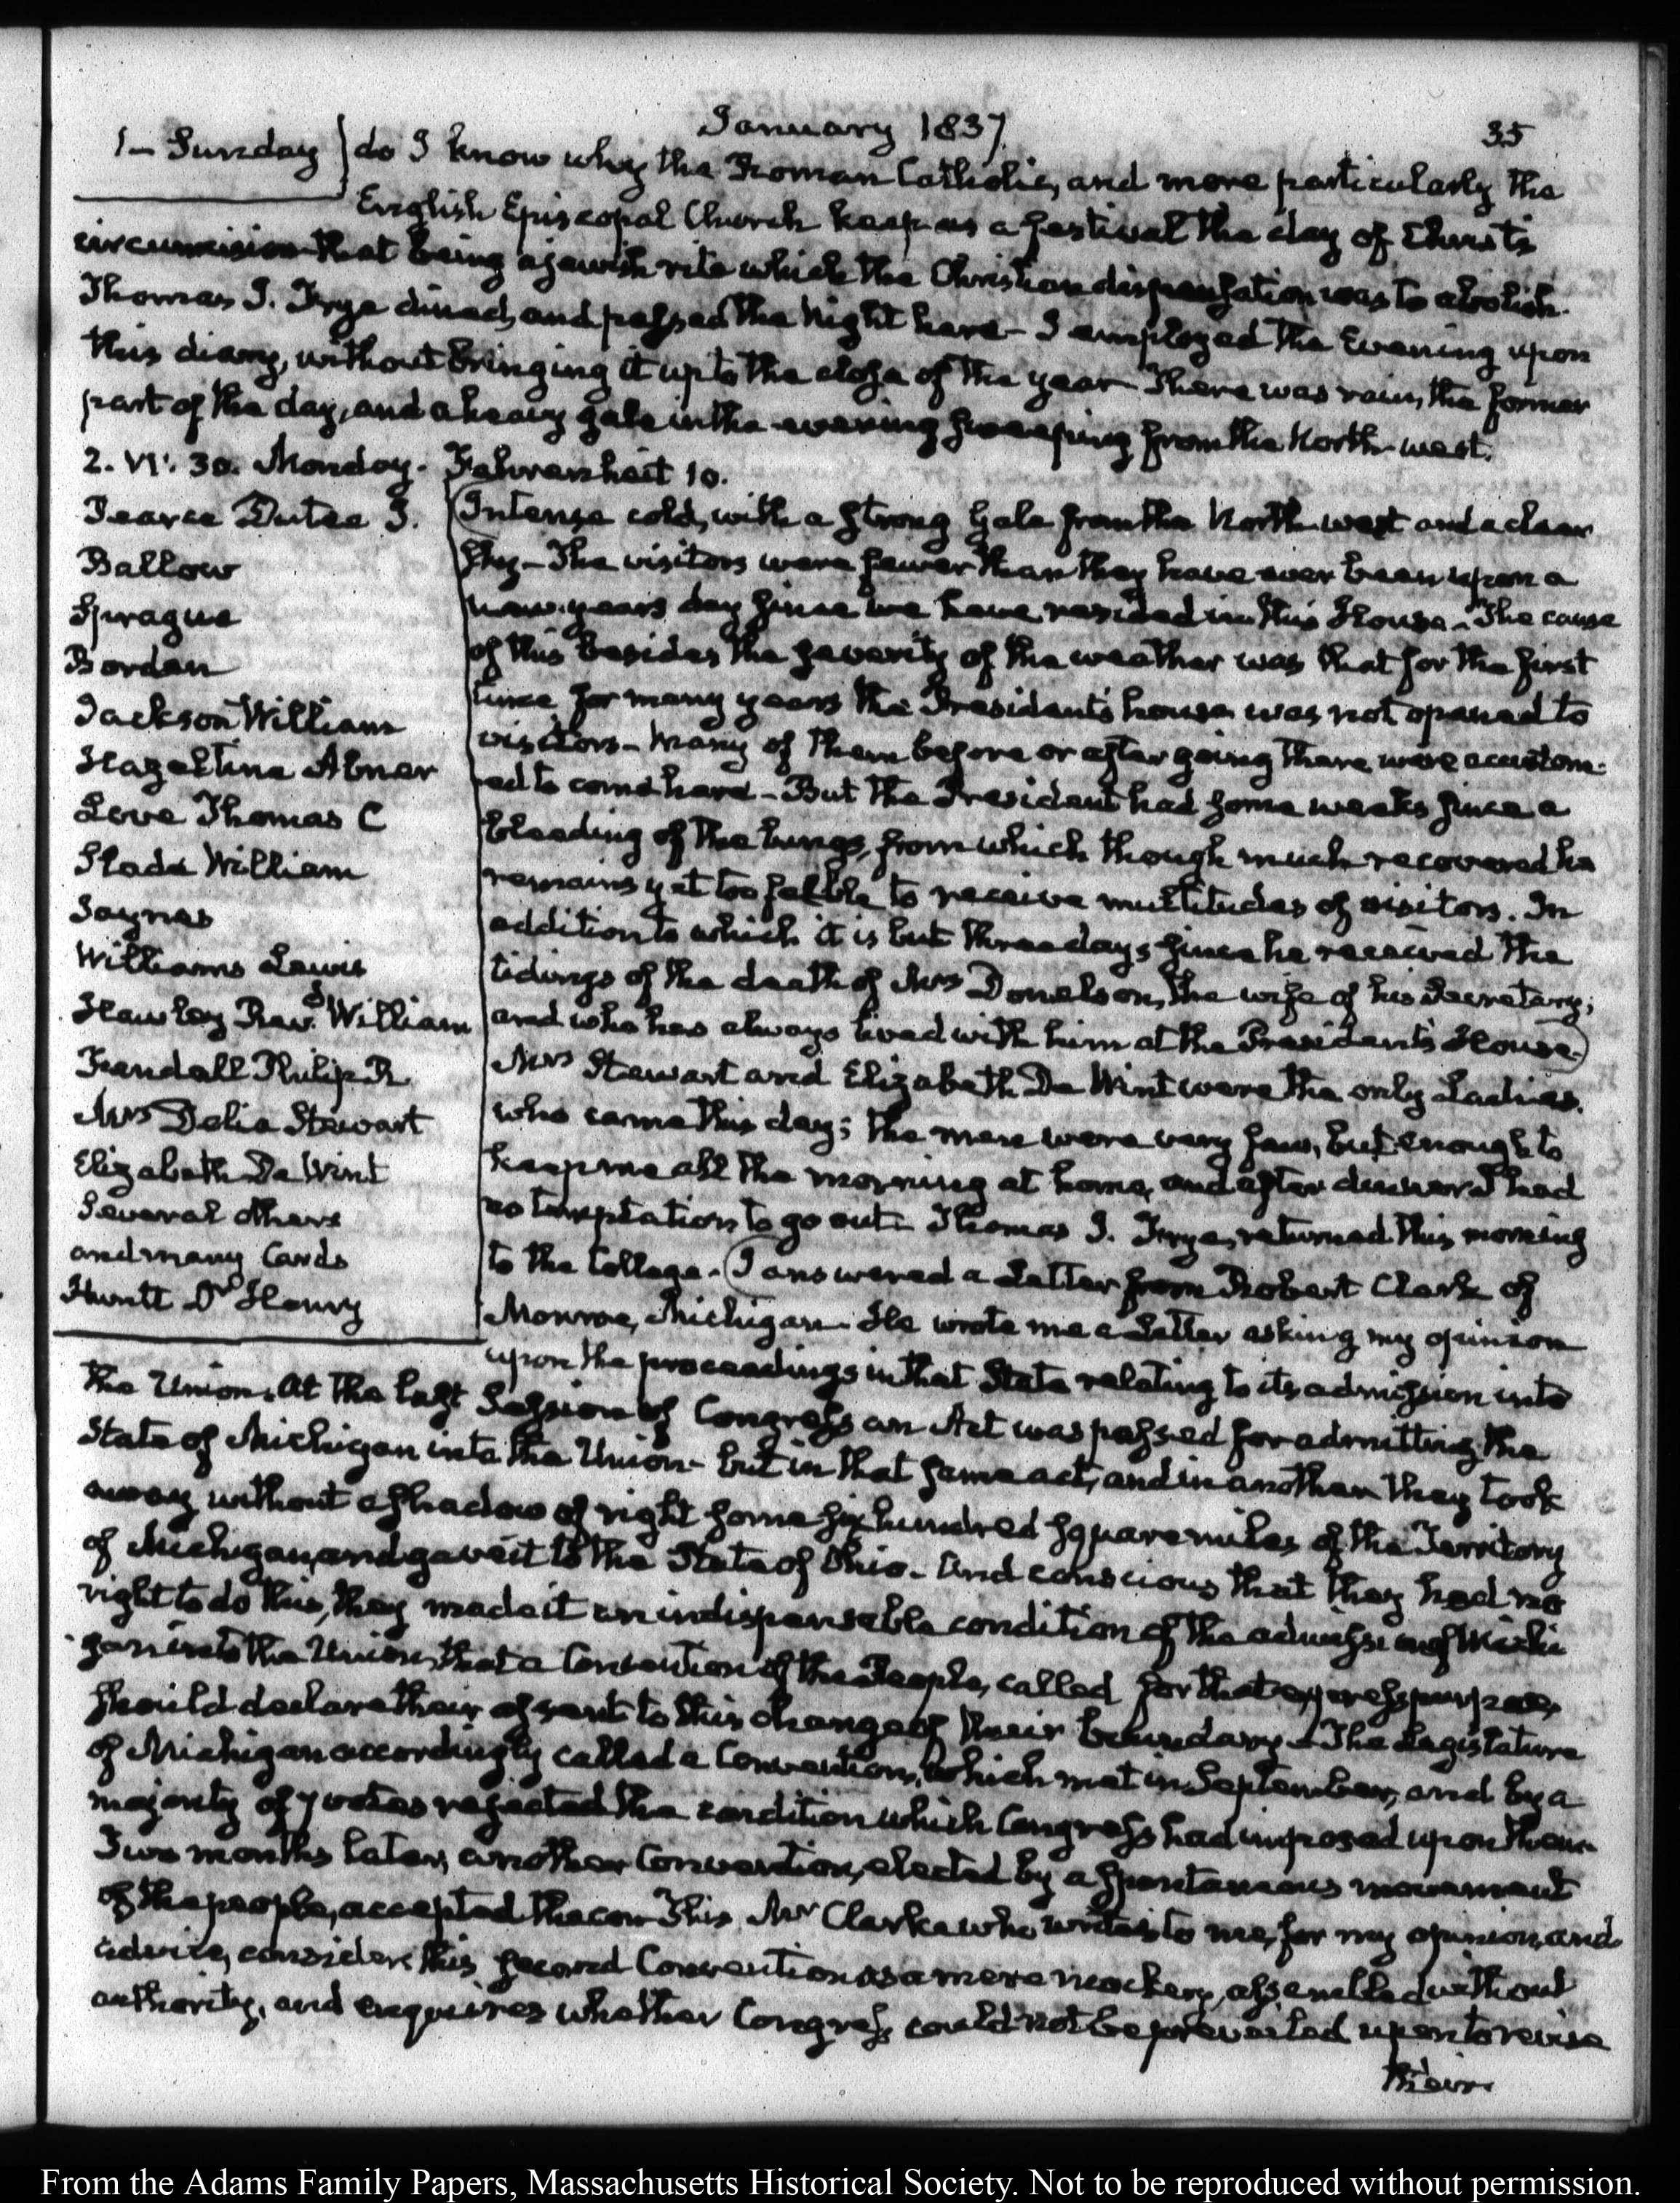 January 1837.
35
1 - Sunday } do I know why the Roman Catholic, and more particularly the
English Episcopal Church keep as a festival the day of Christ's
circumcision that being a jewish rite which the Christian dispensation was to abolish.
Thomas J. Frye dined, and passed the Night here - I employed the Evening upon
this diary, without bringing it up to the close of the year - There was rain, the former
part of the day, and a heavy gale in the evening sweeping from the North-west.
2. VI. 30. Monday. Fahrenheit 10.
Pearce Dutee J.
Ballow
Sprague
Borden
Jackson William
Hazeltine Abner
Love Thomas C
Slade William
Jaynes
Williams Lewis
Hawley Revd. William
Fendall Philip R
Mrs Delia Stewart
Elizabeth De Wint
Several others
and many Cards
Huntt Dr Henry
Intense cold, with a strong Gale from the North-west and a clear
sky - The visitors were fewer than they have ever been upon a
new-year's day since we have resided in this House - The cause
of this besides the severity of the weather was that for the first
time for many years the President's house was not opened to
visitors - Many of them before or after going there were accustom-
ed to come here - But the President had some weeks since a
bleeding of the lungs, from which though much recovered he
remains yet too feeble to receive multitudes of visitors. In
addition to which it is but three days since he received the
tidings of the death of Mrs Donelson, the wife of his Secretary;
and who has always lived with him at the President's House.
Mrs Stewart and Elizabeth De Wint were the only Ladies.
who came this day; the men were very few, but enough to
keep me all the morning at home, and after dinner I had
no temptation to go out - Thomas J. Frye, returned this morning
to the College. I answered a Letter from Robert Clark of
Monroe, Michigan - He wrote me a Letter asking my opinion
upon the proceedings in that State relating to its admission into
the Union. At the last Session of Congress an Act was passed for admitting the
State of Michigan into the Union - but in that same act, and in another they took
away without a shadow of right some six hundred square miles of the Territory
of Michigan, and gave it to the State of Ohio - And conscious that they had no
right to do this, they made it an indispensable condition of the admission of Michi
gan into the Union, that a Convention of the People, called for that express purpose,
should declare their assent to this change of their boundary - The Legislature
of Michigan accordingly called a Convention, which met in September, and by a
majority of 7 votes rejected the condition which Congress had imposed upon them.
Two months later, another Convention, elected by a spontaneous movement
of the people, accepted the con This Mr Clarke who writes to me, for my opinion, and
advice, considers this second Convention as a mere mockery, assembled without
authority, and enquires whether Congress could not be prevailed upon to revise
their
From the Adams Family Papers, Massachusetts Historical Society. Not to be reproduced without permission.